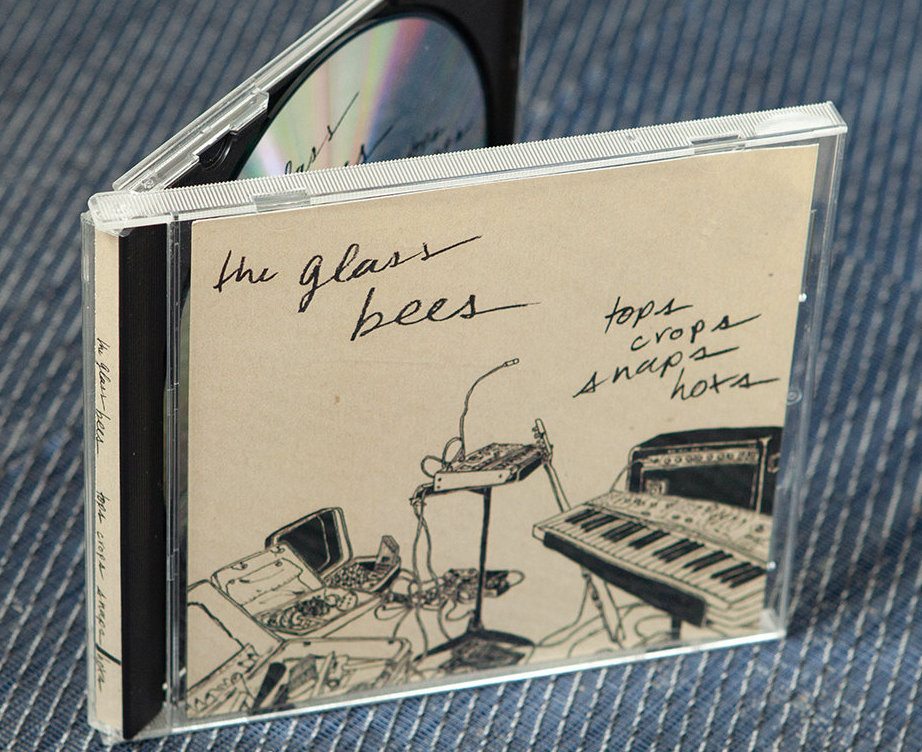 the glass
bees
tops
crops
snaps
hots
the glass bees tops crops snaps hots
glass